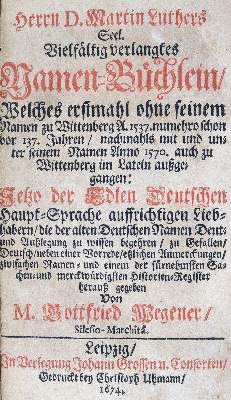 Herrn D. Martin Luthers
Seel.
Vielfältig verlangtes
Namen-Büchlein/
Welches erstmahl ohne seinem
Namen zu Wittenberg A. 1537. nunmehro schon
vor 137. Jahren/ nachmahls mit und un-
ter seinem Namen Anno 1570. auch zu
Wittenberg im Latein außge-
gangen:
Jetzo der Edlen Deutschen
Haupt-Sprache auffrichtigen Lieb-
habern/ die der alten Deutschen Namen Deut-
und Außlegung zu wissen begehren/ zu Gefallen/
Deutsch/ neben einer Vorrede/ etzlichen Anmerckungen/
zwifachen Namen- und einem der fürnehmsten Sa-
chen und merckwürdigsten Historien-Register
herauß gegeben
Von
M. Gottfried Wegener/
Silesio-Marchita.
Leipzig/
In Verlegung Johann Grossen u. Consorten/
Gedruckt bey Christoph Uhmann/
1674.